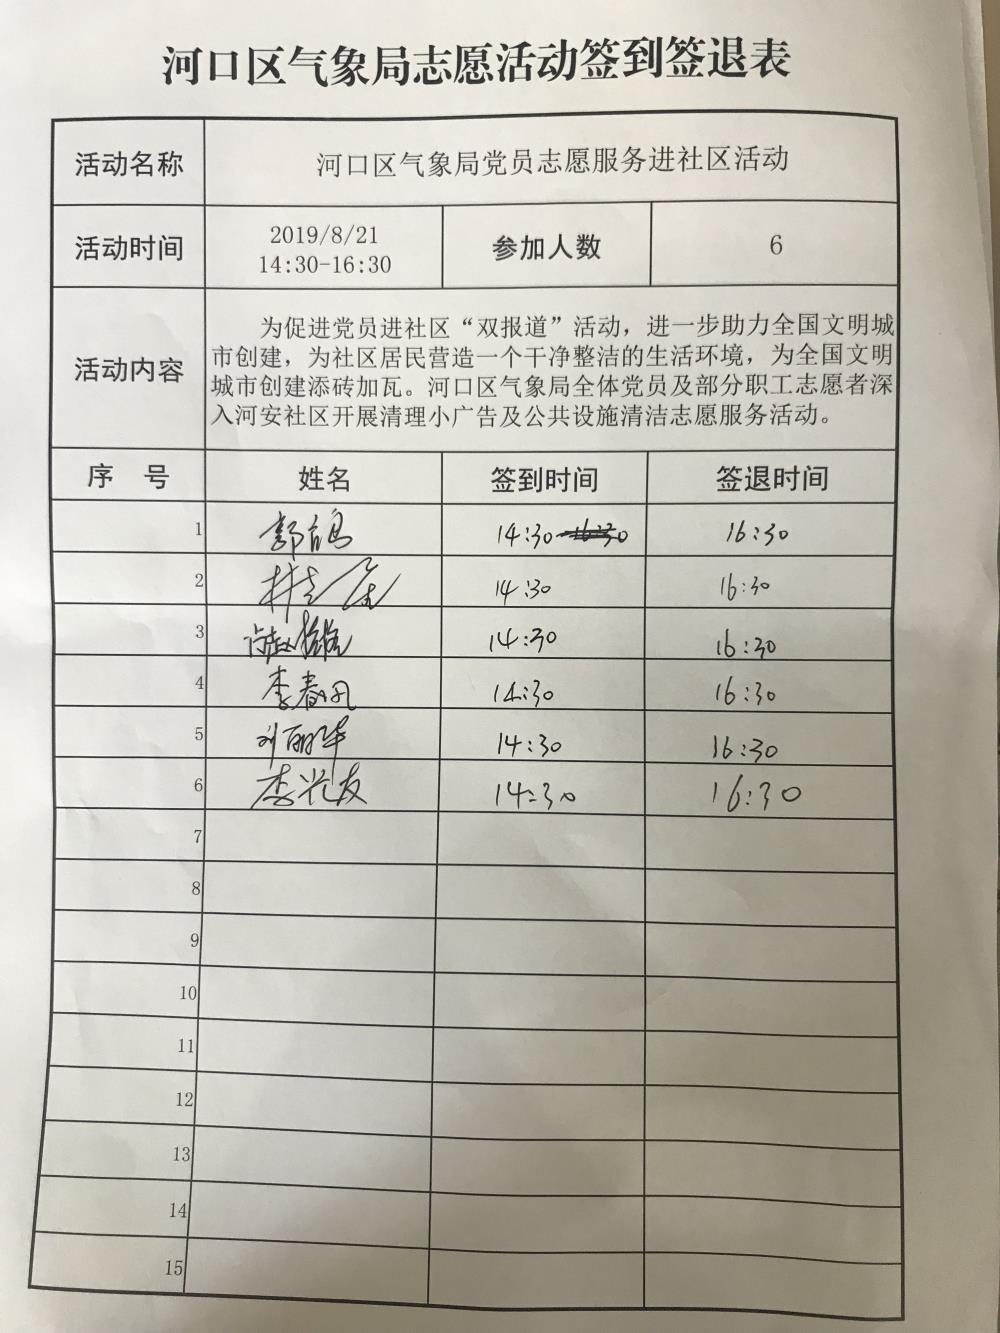 河口区气象局志愿活动签到签退表
活动名称 河口区气象局党员志愿服务进社区活动
活动时间 2019/8/21 14:30-16:30 参加人数 6
活动内容
为促进党员进社区“双报道”活动，进一步助力全国文明城
市创建，为社区居民营造一个干净整洁的生活环境，为全国文明
城市创建添砖加瓦。河口区气象局全体党员及部分职工志愿者深
入河安社区开展清理小广告及公共设施清洁志愿服务活动。
序 号 姓名 签到时间 签退时间
1 14:30 16:30
2 14:30 16:30
3 14:30 16:30
4 李春风 14:30 16:30
5 刘丽华 14:30 16:30
6 李兴友 14:30 16:30
7
8
9
10
11
12
13
14
15